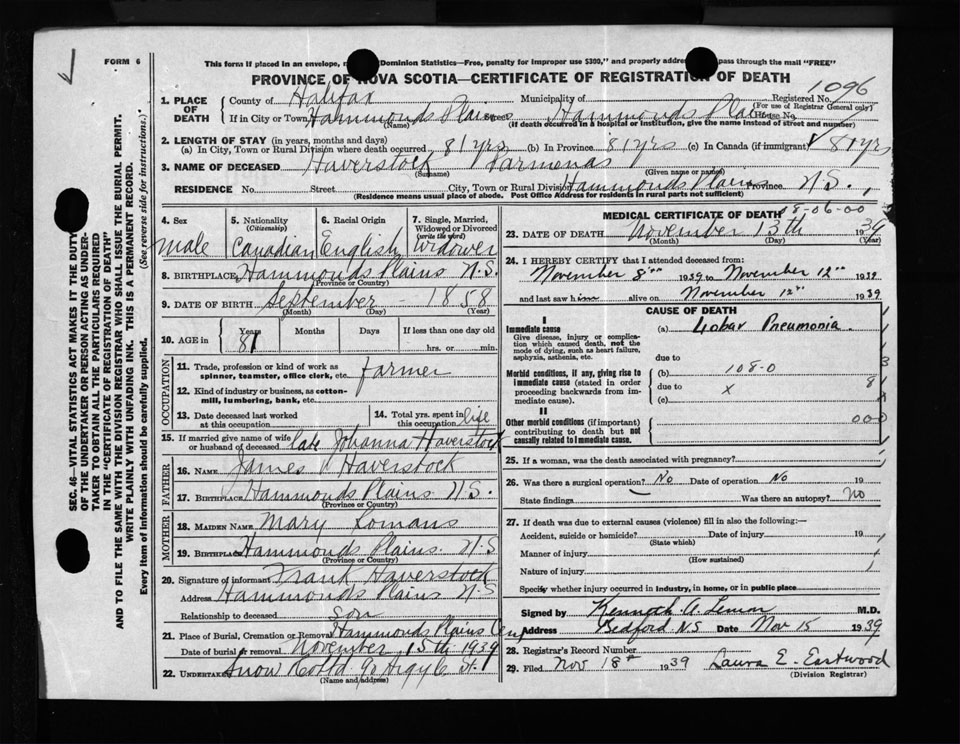 FORM 6
This form if placed in an envelope, Dominion Statistics—Free, penalty for improper use $300," and properly addre pass through the mail "FREE"
PROVINCE OF NOVA SCOTIA—CERTIFICATE OF REGISTRATION OF DEATH
1. PLACE OF DEATH
County of Halifax Municipality of Registered No. 1096
(For use of Registrar General only)
If in City or Town Hammonds Plains Street Hammonds Plains House No.
(Name) (If death occurred in a hospital or institution, give the name instead of street and number)
2. LENGTH OF STAY (in years, months and days)
(a) In City, Town or Rural Division where death occurred 81 yrs (b) In Province 81 yrs (c) In Canada (if immigrant) 81 yrs
3. NAME OF DECEASED Haverstock Parmenas
(Surname) (Given name or names)
RESIDENCE No. Street City, Town or Rural Division Hammonds Plains Province N.S.
(Residence means usual place of abode. Post Office Address for residents in rural parts not sufficient)
4. Sex
Male
5. Nationality
(Citizenship)
Canadian
6. Racial Origin
English
7. Single, Married, Widowed or Divorced
(write the word)
Widower
8. BIRTHPLACE Hammonds Plains N.S.
(Province or Country)
9. DATE OF BIRTH September - 1858
(Month) (Day) (Year)
10. AGE in
Years Months Days If less than one day
81 hrs. or min.
OCCUPATION
11. Trade, profession or kind of work as spinner, teamster, office clerk, etc. farmer
12. Kind of industry or business, as cotton-mill, lumbering, bank, etc.
13. Date deceased last worked at this occupation
14. Total yrs. spent in this occupation life
15. If married give name of wife or husband of deceased late Johanna Haverstock
FATHER
16. NAME James Haverstock
17. BIRTHPLACE Hammonds Plains N.S.
(Province or Country)
MOTHER
18. MAIDEN NAME Mary Lomans
19. BIRTHPLACE Hammonds Plains. N.S
(Province or Country)
20. Signature of informant Frank Haverstock
Address Hammonds Plains N.S
Relationship to deceased son
21. Place of Burial, Cremation or Removal Hammonds Plains Cem
Date of burial or removal November 15th 1939
22. UNDERTAKER Snow Co Ltd 90 Argyle St.
(Name and address)
MEDICAL CERTIFICATE OF DEATH
18-06-00
23. DATE OF DEATH November 13th 1939
(Month) (Day) (Year)
24. I HEREBY CERTIFY that I attended deceased from:
November 8th 1939 to November 12th 1939
and last saw him alive on November 12th 1939
CAUSE OF DEATH
I
Immediate cause (a) Lobar Pneumonia
Give disease, injury or complication which caused death, not the mode of dying, such as heart failure, asphyxia, asthenia, etc.
due to
Morbid conditions, if any, giving rise to immediate cause (stated in order proceeding backwards from immediate cause).
(b) 108-0
due to x
(c)
II
Other morbid conditions (if important) contributing to death but not causally related to immediate cause.
8
000
25. If a woman, was the death associated with pregnancy?
26. Was there a surgical operation? No Date of operation No 19
State findings Was there an autopsy? No
27. If death was due to external causes (violence) fill in also the following:—
Accident, suicide or homicide? Date of injury 19
(State which)
Manner of injury
(How sustained)
Nature of injury
Specify whether injury occurred in industry, in home, or in public place
Signed by Kenneth A Lemon M.D.
Address Bedford N.S Date Nov 15 1939
28. Registrar's Record Number
29. Filed Nov 18th 1939 Laura E. Eastwood
(Division Registrar)
SEC. 46—VITAL STATISTICS ACT MAKES IT THE DUTY
OF THE UNDERTAKER OR PERSON ACTING AS UNDER-
TAKER TO OBTAIN ALL THE PARTICULARS REQUIRED
IN THE "CERTIFICATE OF REGISTRATION OF DEATH"
AND TO FILE THE SAME WITH THE DIVISION REGISTRAR WHO SHALL ISSUE THE BURIAL PERMIT.
WRITE PLAINLY WITH UNFADING INK. THIS IS A PERMANENT RECORD.
Every item of information should be carefully supplied. (See reverse side for instructions.)